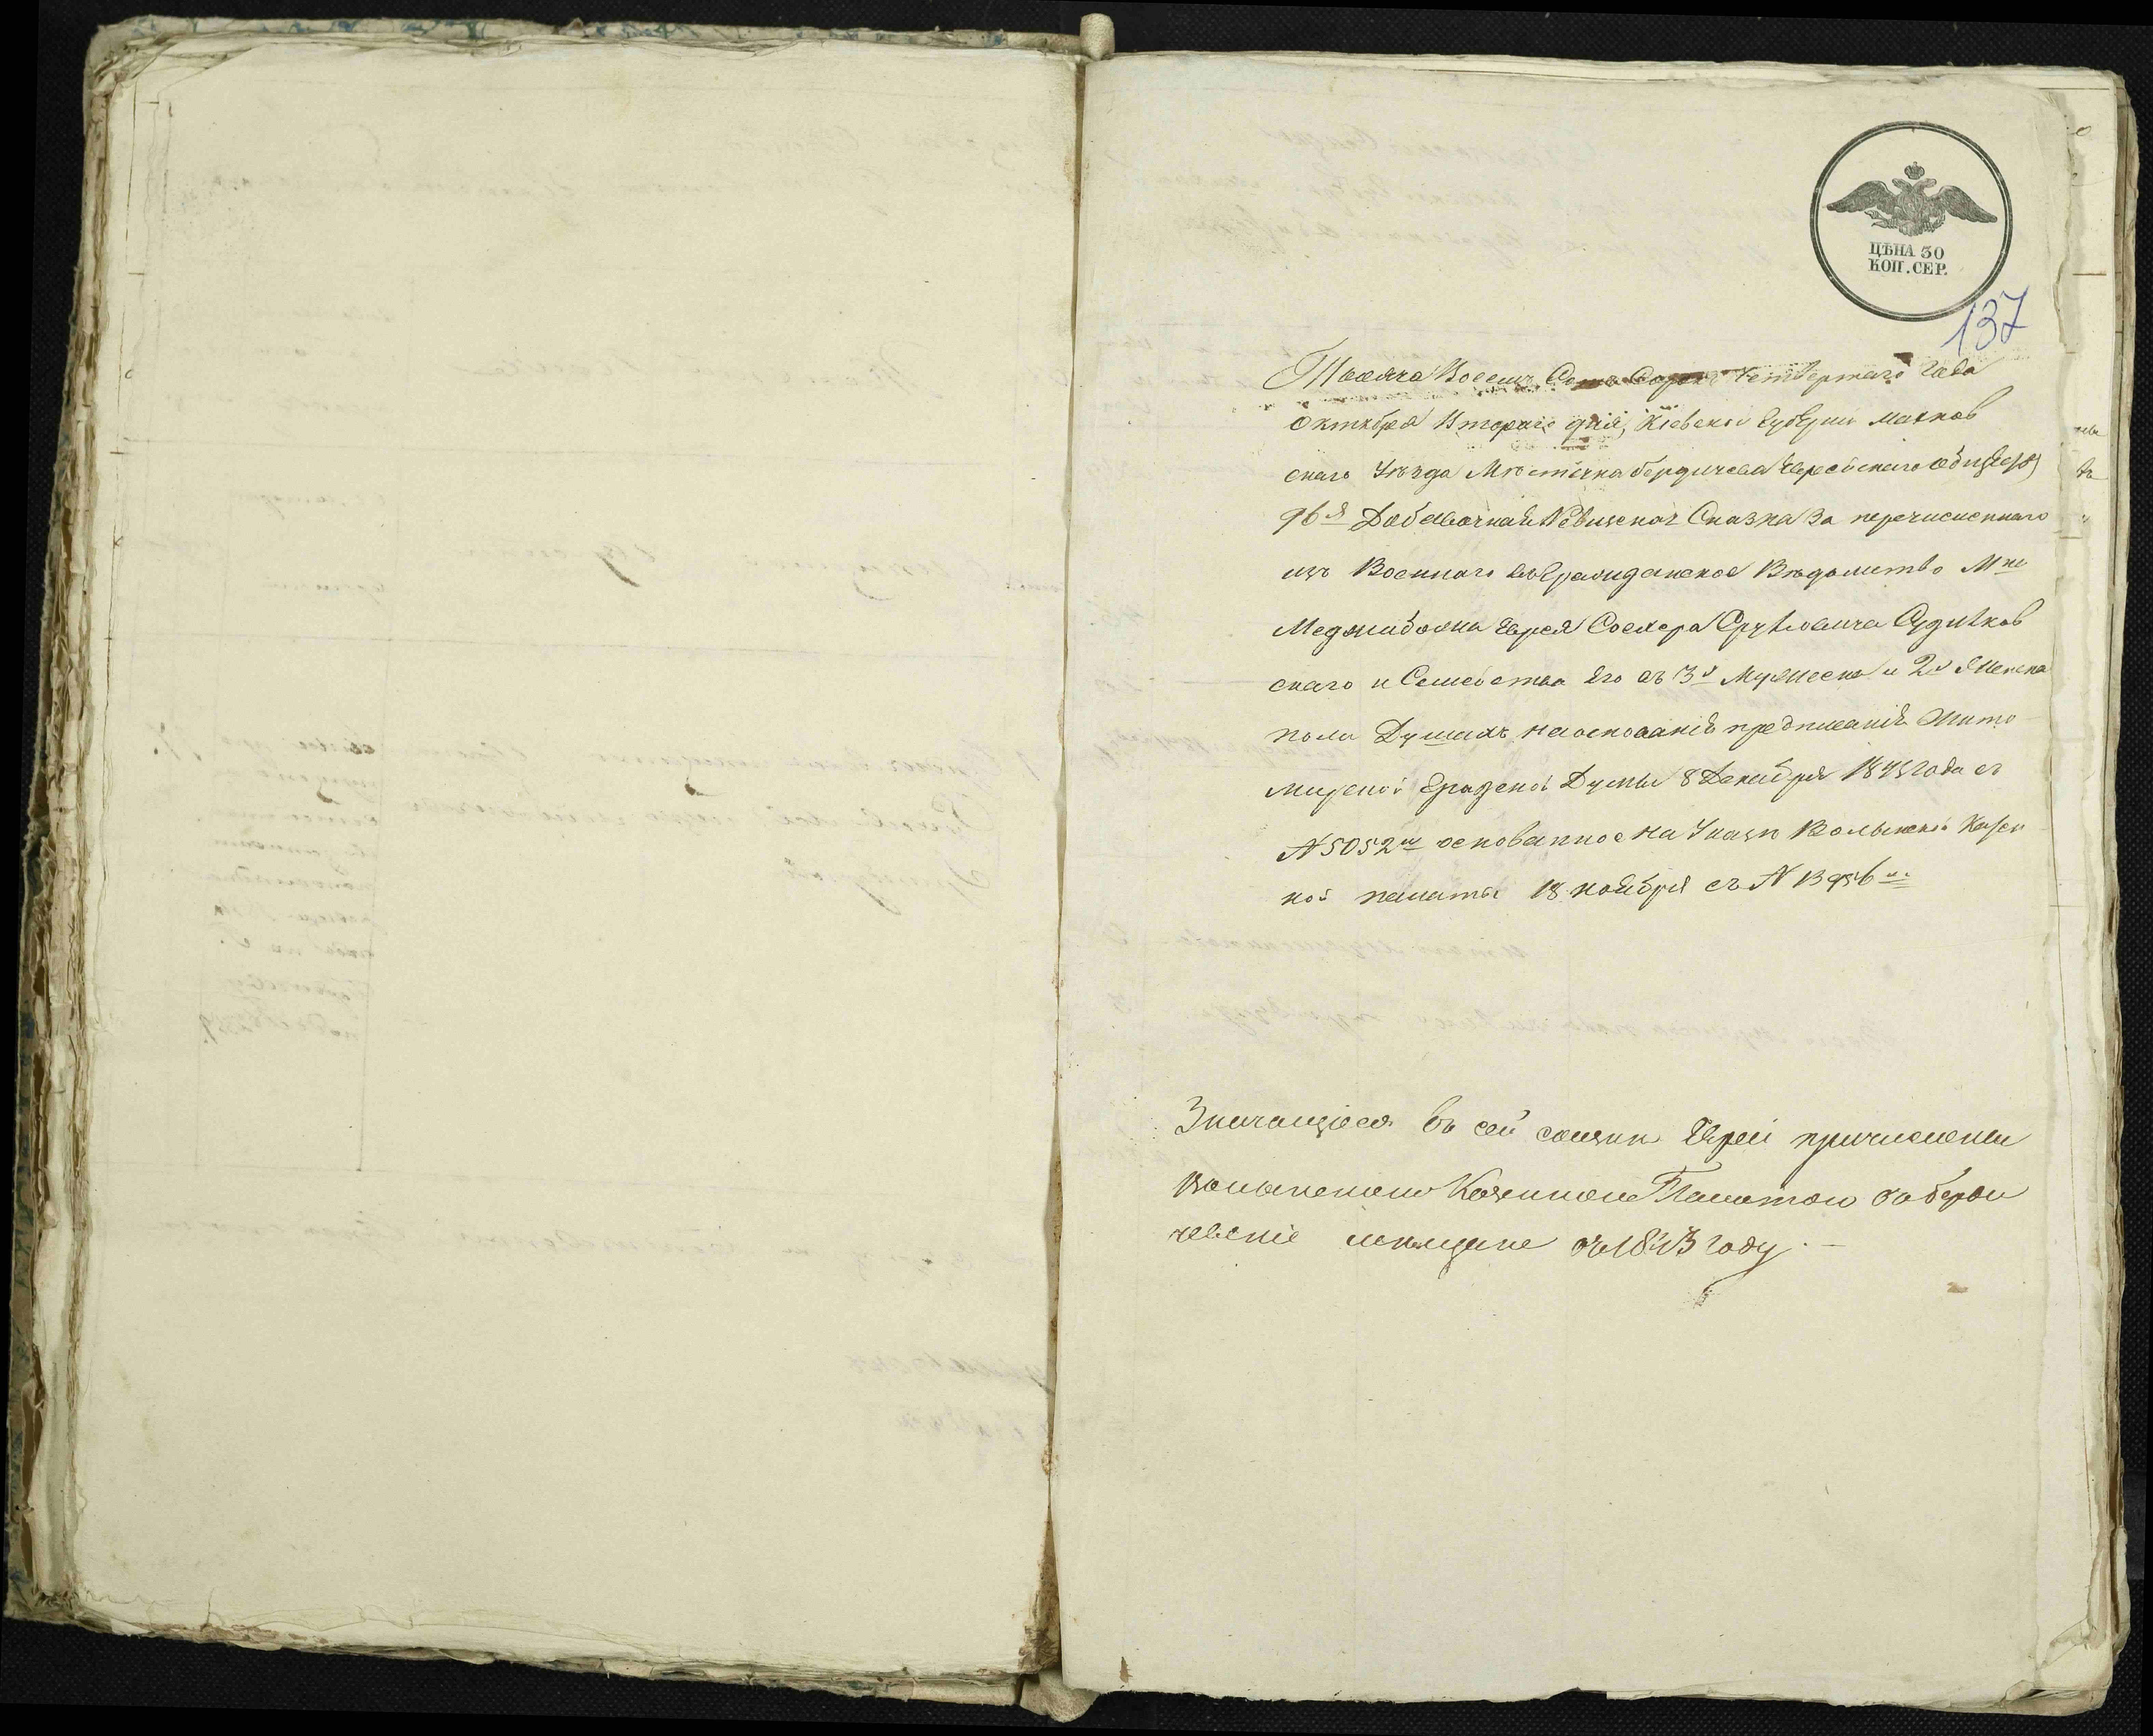 ЦѢНА 30
КОП. СЕР.
137
Тысяча Восемь Сотъ Сорокъ Четвертаго Года
Октября Втораго дня, Кіевской Губерніи Махнов
скаго Уѣзда Мѣстечка Бердичева Еврейскаго общества
96я Добавочная Ревизская Сказка За перечисленнаго
изъ Военнаго въ Гражданское Вѣдомство Мка
Меджибожа Еврея Срулевича Судилков
скаго и Семейства Его въ 3х Мужеска и 2х Женска
пола Душахъ на основаніи предписанія Жито
мирской Градской Думы 8 Декабря 1843 года съ
№ 5052м основанное на Указѣ Волынской Казен
ной палаты 18 ноября съ № 13956м
Значащіеся въ сей сказкѣ Евреи причислены
Волынскою Казенною Палатою въ Берди
чевскіе мещане въ 1843 году.